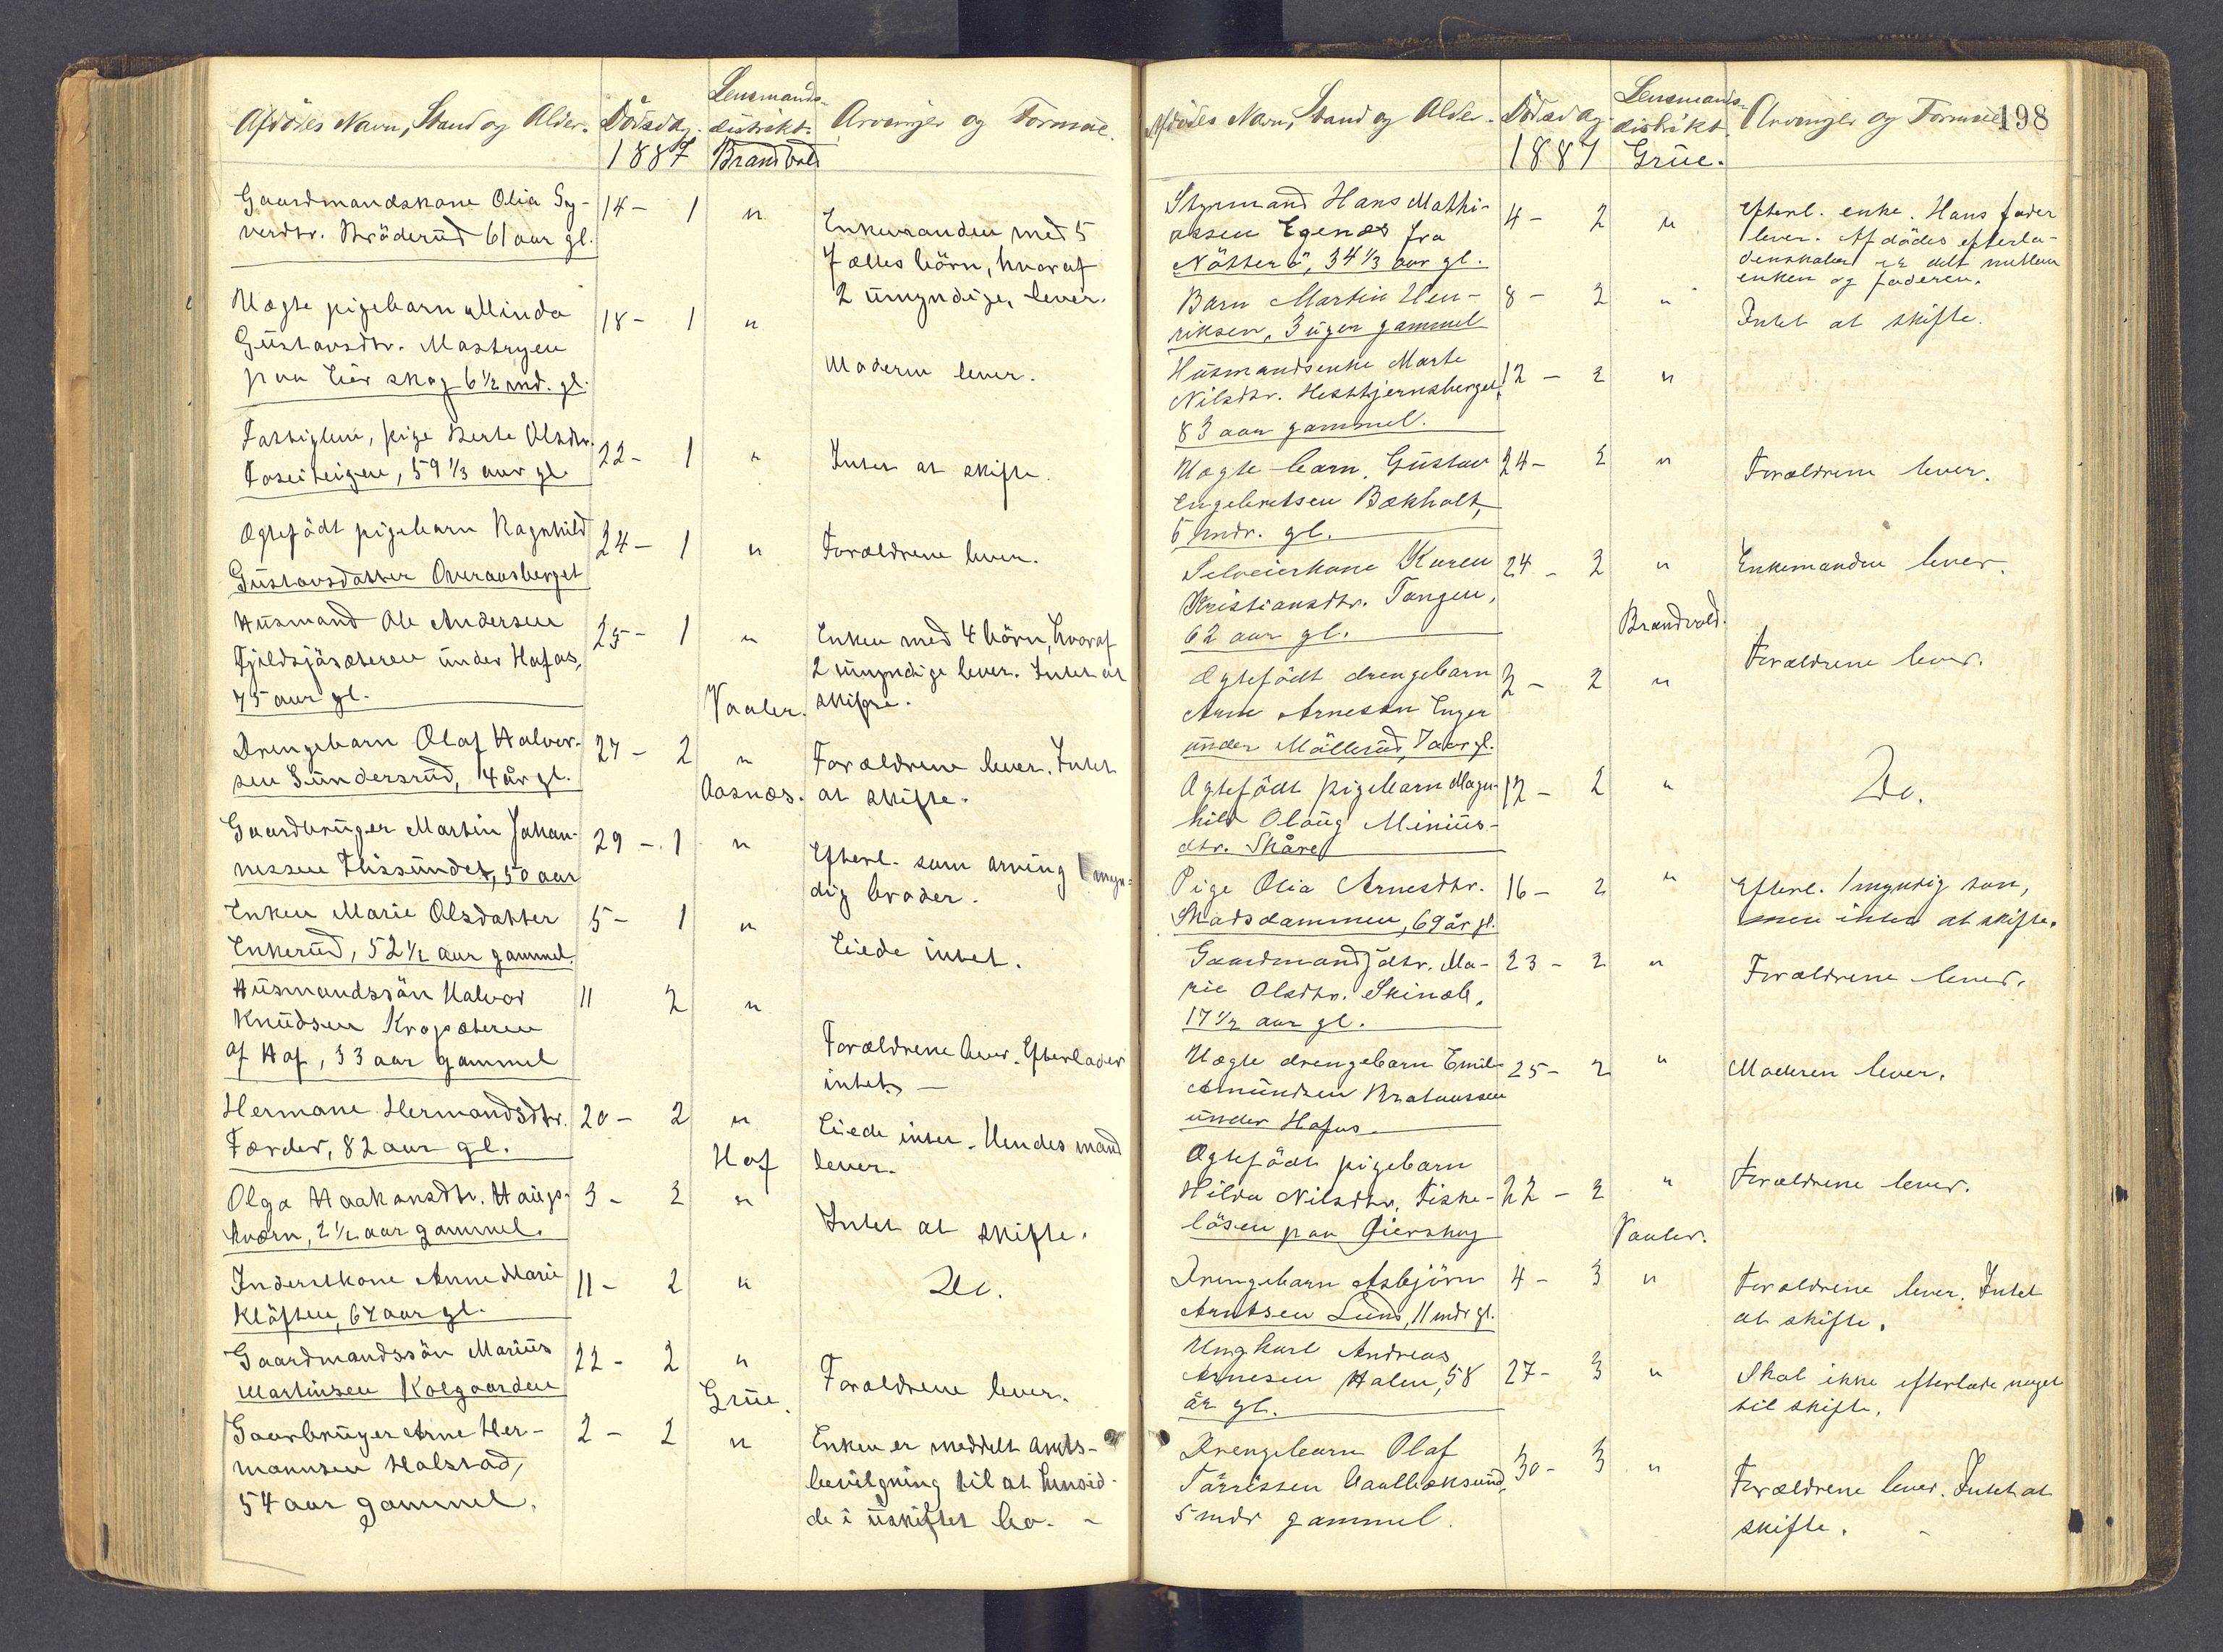 Afdödes Navn, Stand og Alder. Dödsdag. Lensmands-
distrikt. Arvinger og Formue.
1887 Brandvold
Gaardmandskone Olia Sy- 14 - 1 "
verdtr. Bröderud 61 aar gl.
Enkemanden med 5
fælles börn, hvoraf
2 umyndige, lever.
Uægte pigebarn Minda 18 - 1 "
Gustavsdtr. Mastryen
paa Eier skog 6 1/2 md. gl.
Moderen lever.
Fattiglem, pige Berte Olsdtr. 22 - 1 "
59 1/3 aar gl.
Intet at skifte.
Ægtefödt pigebarn Ragnhild 24 - 1 "
Gustavsdatter Overaasberget
Forældrene lever.
Husmand Ole Andersen 25 - 1 "
Fjeldsjösæteren under Hofas,
75 aar gl.
Enken med 4 börn, hvoraf
2 umyndige lever. Intet at
skifte.
Vaaler.
Drengebarn Olaf Halvor- 27 - 2 "
sen Gundersrud, 4 år gl.
Forældrene lever. Intet
at skifte.
Aasnæs.
Gaardbruger Martin Johan- 29 - 1 "
nessen Flissundet, 50 aar
Efterl. som arving 1 myn-
dig broder.
Enken Marie Olsdatter 5 - 1 "
Enkerud, 52 1/2 aar gammel.
Eiede intet.
Husmandssön Halvor 11 2 "
Knudsen Kropsæteren
af Hof, 33 aar gammel
Forældrene lever. Efterlader
intet. -
Hermane Hermandsdtr. 20 - 2 "
Færder, 82 aar gl.
Eiede intet. Hendes mand
lever.
Hof
Olga Haakonsdtr. Haugs- 3 - 2 "
kværn, 2 1/2 aar gammel.
Intet at skifte.
Inderstkone Anne Marie 11 - 2 "
Klöften, 67 aar gl.
Do.
Gaardmandssön Marius 22 - 2 "
Martinsen Kolgaarden
Forældrene lever.
Grue.
Gaarbruger Arne Her- 2 - 2 "
mannsen Holstad,
54 aar gammel.
Enken er meddelt amts-
bevilgning til at hensid-
de i uskiftet bo. -
198
Afdödes Navn, Stand og Alder. Dödsdag. Lensmands-
distrikt. Arvinger og Formue
1887 Grue.
Styrmand Hans Mathi- 4 - 2 "
assen Egenæs fra
Nötterö, 34 1/3 aar gl.
Efterl. enke. Hans fader
lever. Afdödes efterla-
denskaber er delt mellem
enken og faderen.
Barn Martin Hen- 8 - 2 "
riksen, 3 uger gammel
Intet at skifte.
Husmandsenke Marte 12 - 2 "
Nilsdtr. Hesttjernsberget,
83 aar gammel.
Uægte barn Gustav 24 - 2 "
Engebretsen Bækholt,
5 mdr. gl.
Forældrene lever.
Selveierkone Karen 24 - 2 "
Kristiansdtr. Tangen,
62 aar gl.
Enkemanden lever.
Brandvold.
Ægtefödt drengebarn 2 - 2 "
Arne Arnesen Enger
under Möllerud, 7 aar gl.
Forældrene lever.
Ægtefödt pigebarn Magn- 12 - 2 "
hild Olaug Minius-
dtr. Skåre
Do.
Pige Olia Arnesdtr. 16 - 2 "
Skadsdammen, 69 år gl.
Efterl. 1 myndig sön,
men intet at skifte.
Gaardmandsdtr. Ma- 23 - 2 "
rie Olsdtr. Skinæb.
17 1/2 aar gl.
Forældrene lever.
Uægte drengebarn Emil 25 - 2 "
Amundsen
under Hofas
Moderen lever.
Ægtefödt pigebarn
Hilda Nilsdtr. Fiske- 22 - 2 "
lösen paa Eierskog
Forældrene lever.
Vaaler.
Drengebarn Asbjörn 4 - 3 "
Arntsen Lund, 11 mdr gl.
Forældrene lever. Intet
at skifte.
Ungkarl Andreas
Arnesen Halen, 58 27 - 3 "
år gl.
Skal ikke efterlade noget
til skifte.
Drengebarn Olaf
Törrissen 30 - 3 "
5 mdr gammel.
Forældrene lever. Intet at
skifte. -